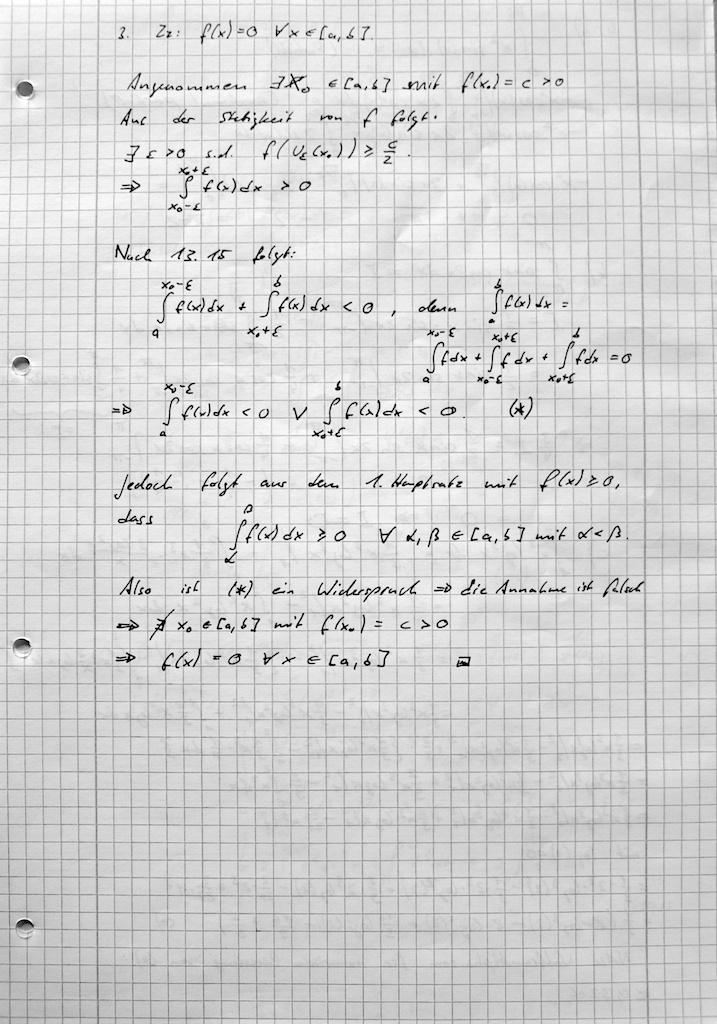 3. Zz: f(x)=0 ∀x∈[a,b].
Angenommen ∃x₀ ∈[a,b] mit f(x₀)=c>0
Aus der Stetigkeit von f folgt.
∃ε>0 s.d. f(U_ε(x₀))≥ c/2.
⇒ ∫_{x₀-ε}^{x₀+ε} f(x)dx > 0
Nach 13.15 folgt:
∫_a^{x₀-ε} f(x)dx + ∫_{x₀+ε}^b f(x)dx < 0, denn ∫_a^b f(x)dx =
∫_a^{x₀-ε} fdx + ∫_{x₀-ε}^{x₀+ε} f dx + ∫_{x₀+ε}^b fdx = 0
⇒ ∫_a^{x₀-ε} f(x)dx < 0 ∨ ∫_{x₀+ε}^b f(x)dx < 0. (*)
Jedoch folgt aus dem 1. Hauptsatz mit f(x)≥0,
dass
∫_α^β f(x)dx ≥ 0 ∀ α,β ∈ [a,b] mit α<β.
Also ist (*) ein Widerspruch ⇒ die Annahme ist falsch
⇒ ∄ x₀∈[a,b] mit f(x₀) = c>0
⇒ f(x) = 0 ∀x ∈ [a,b] □